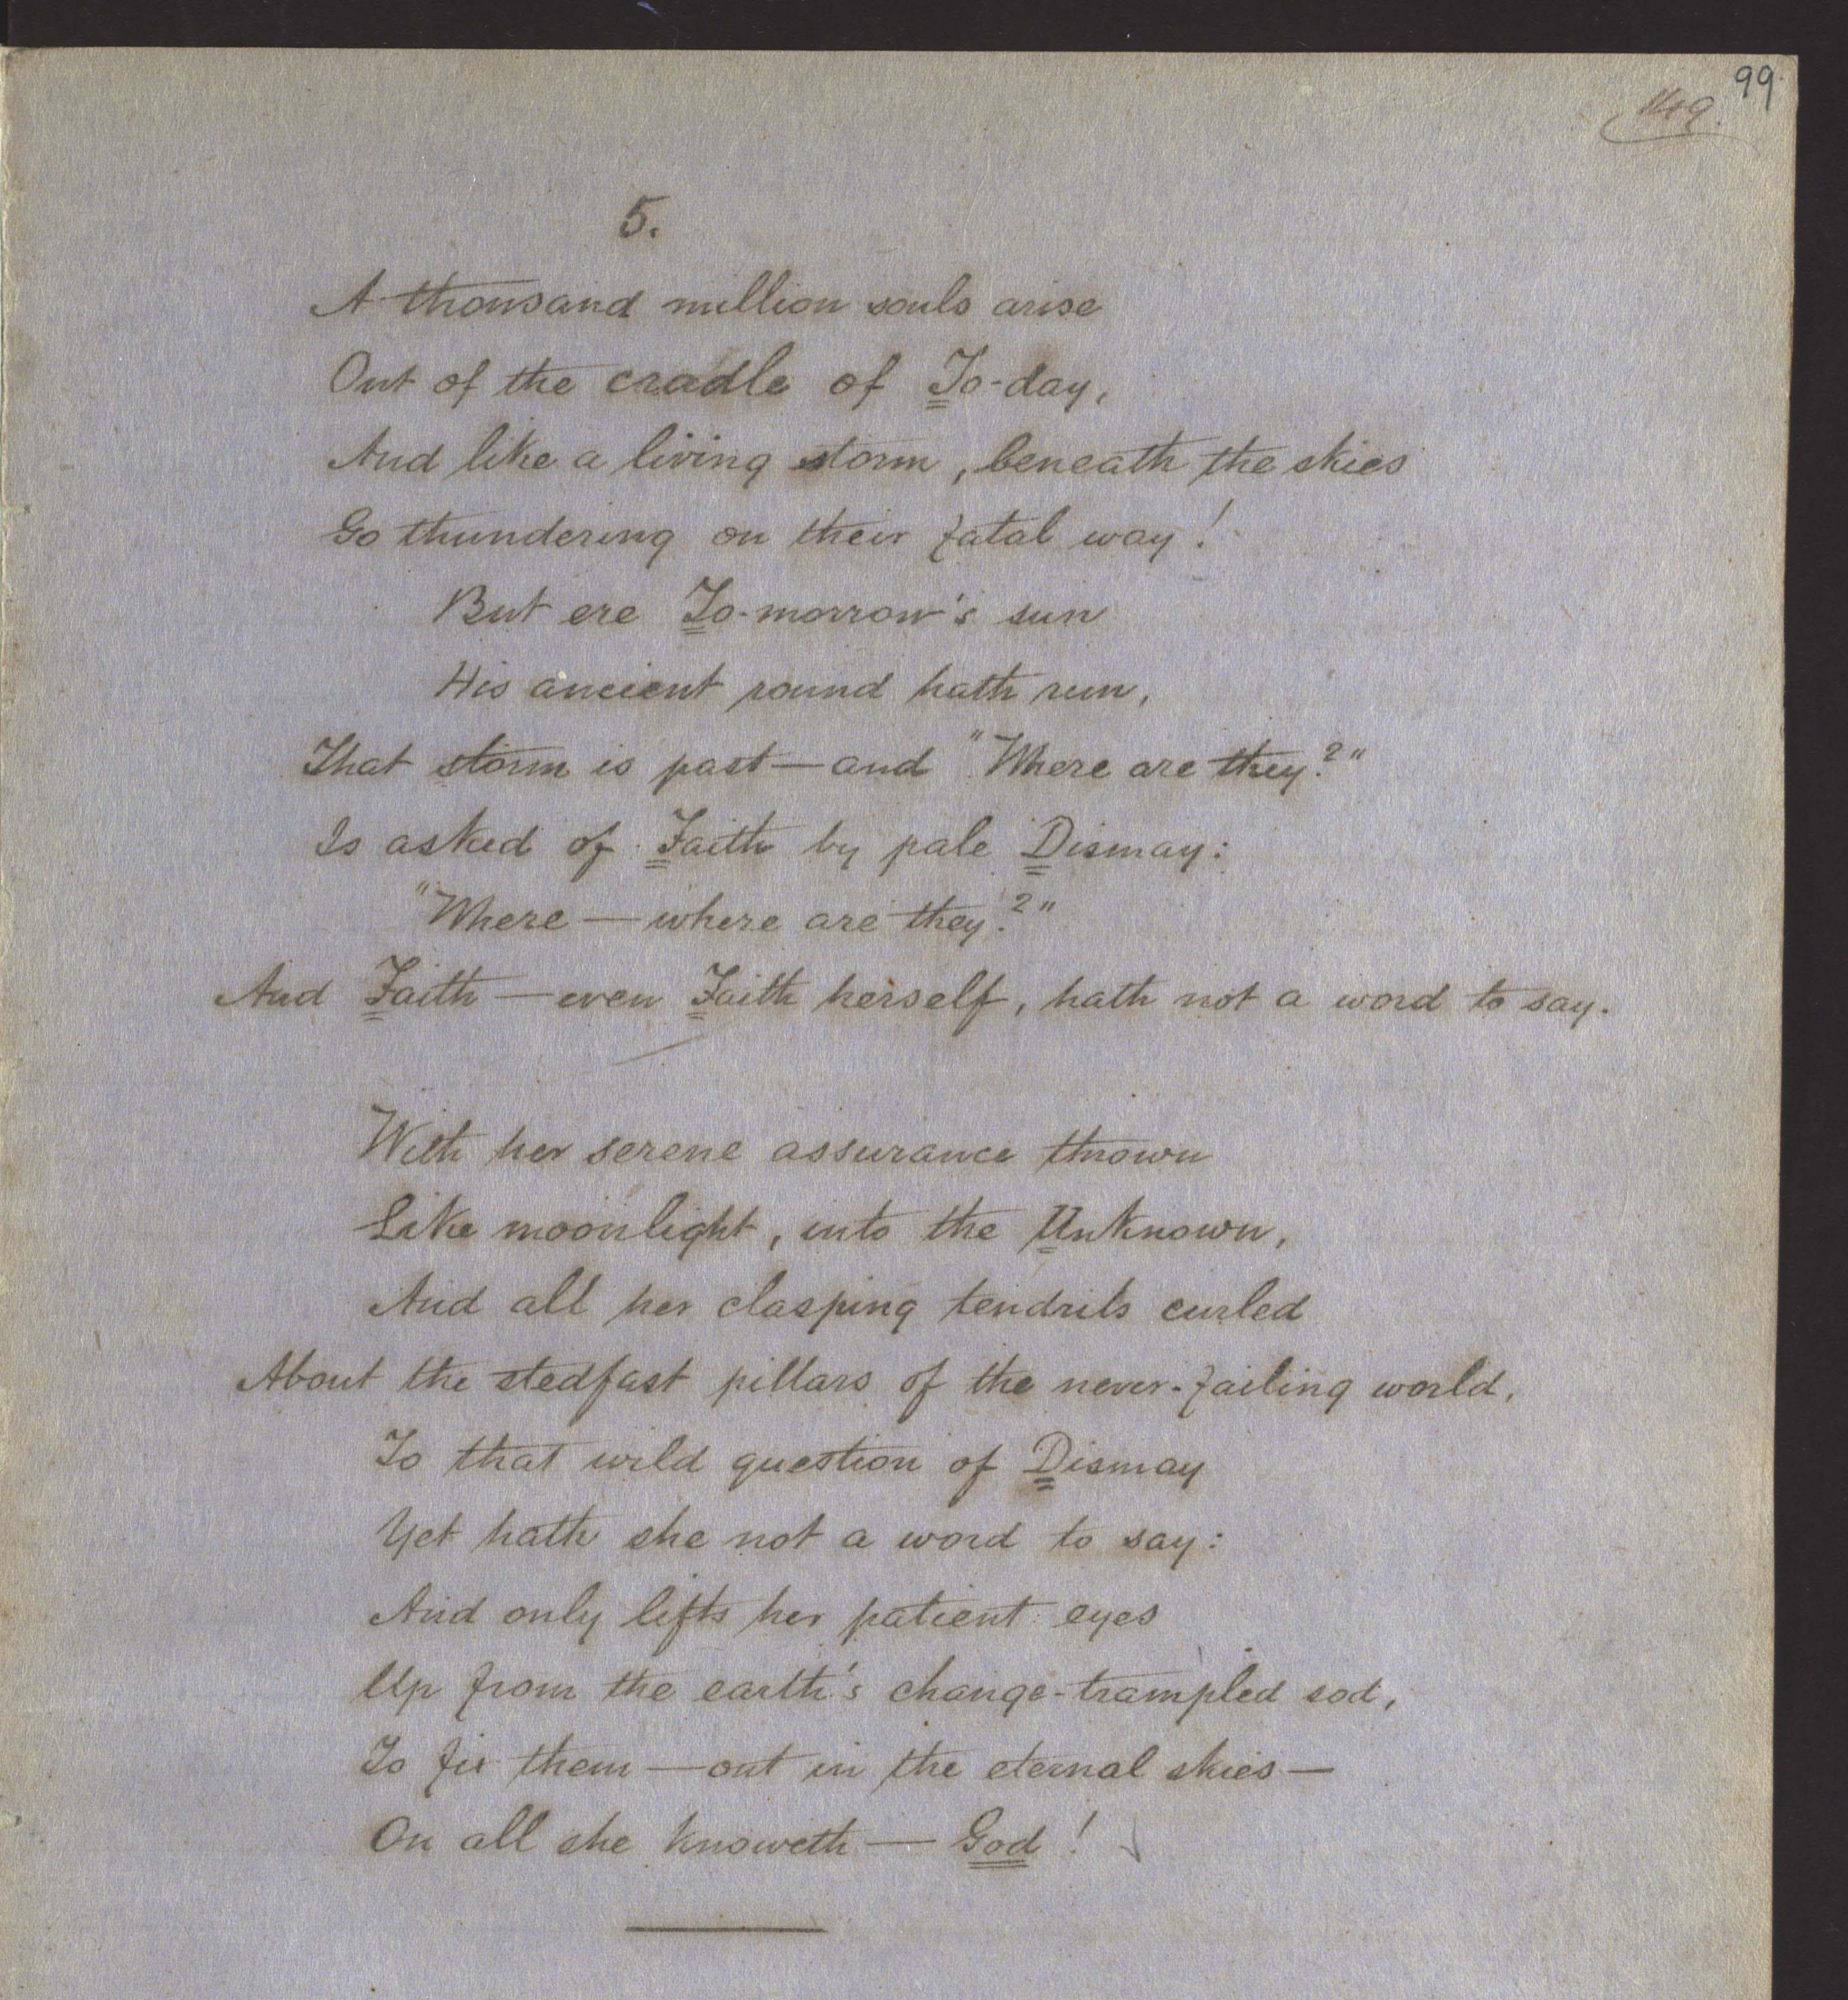 99
149.
5.
A thousand million souls arise
Out of the cradle of To-day,
And like a living storm, beneath the skies
Go thundering on their fatal way!
But ere To-morrow's sun
His ancient round hath run,
That storm is past—and "Where are they?"
Is asked of Faith by pale Dismay:
"Where—where are they?"
And Faith—even Faith herself, hath not a word to say.
With her serene assurance thrown
Like moonlight, into the Unknown,
And all her clasping tendrils curled
About the stedfast pillars of the never-failing world,
To that wild question of Dismay
Yet hath she not a word to say:
And only lifts her patient eyes
Up from the earth's change-trampled sod,
To fix them—out in the eternal skies—
On all she knoweth—God!